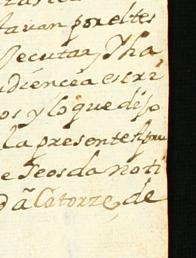 tavan por el tes
secutar, Y ha
udiencea estri
os y lo que dijo
la presente
e seos da noti
d a Catorze, de